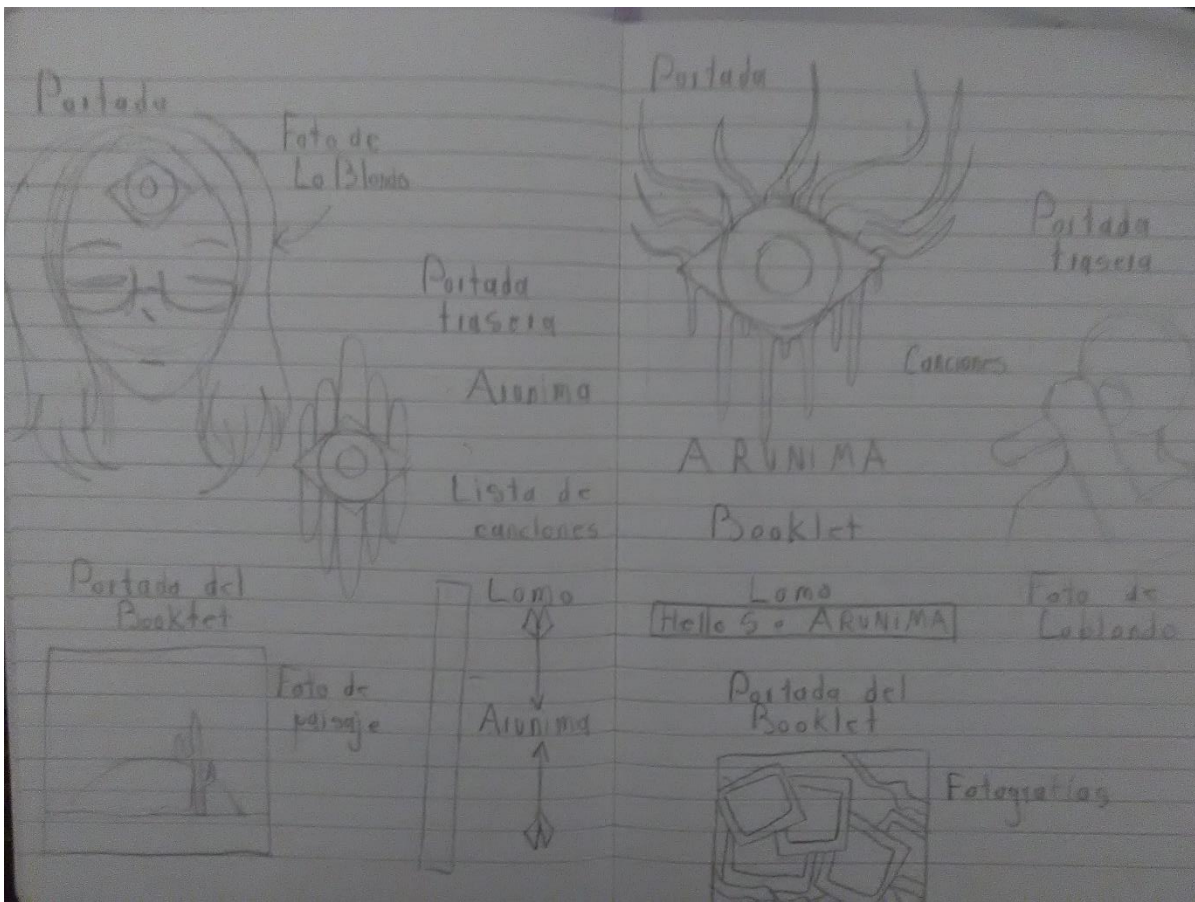 Portada
Foto de
La Blonda
Portada
trasera
Arunima
Lista de
canciones
Portada del
Booklet
Foto de
paisaje
Lomo
Arunima
Portada
Portada
trasera
Canciones
ARUNIMA
Booklet
Lomo
Hello S. ARUNIMA
Foto de
Lablonda
Portada del
Booklet
Fotografías